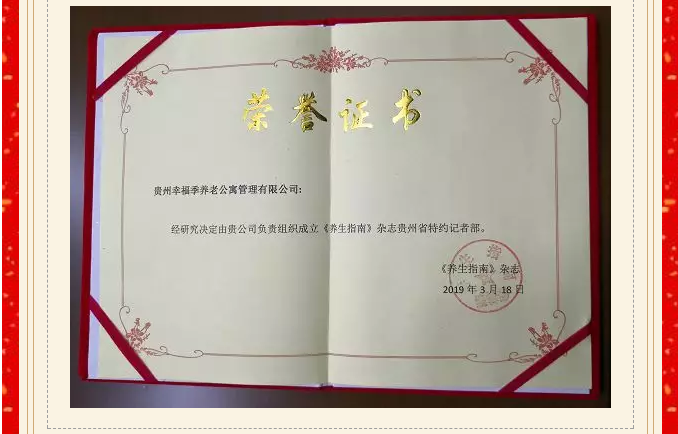 荣誉证书
贵州幸福季养老公寓管理有限公司:
经研究决定由贵公司负责组织成立《养生指南》杂志贵州省特约记者部。
《养生指南》杂志
2019年3月18日